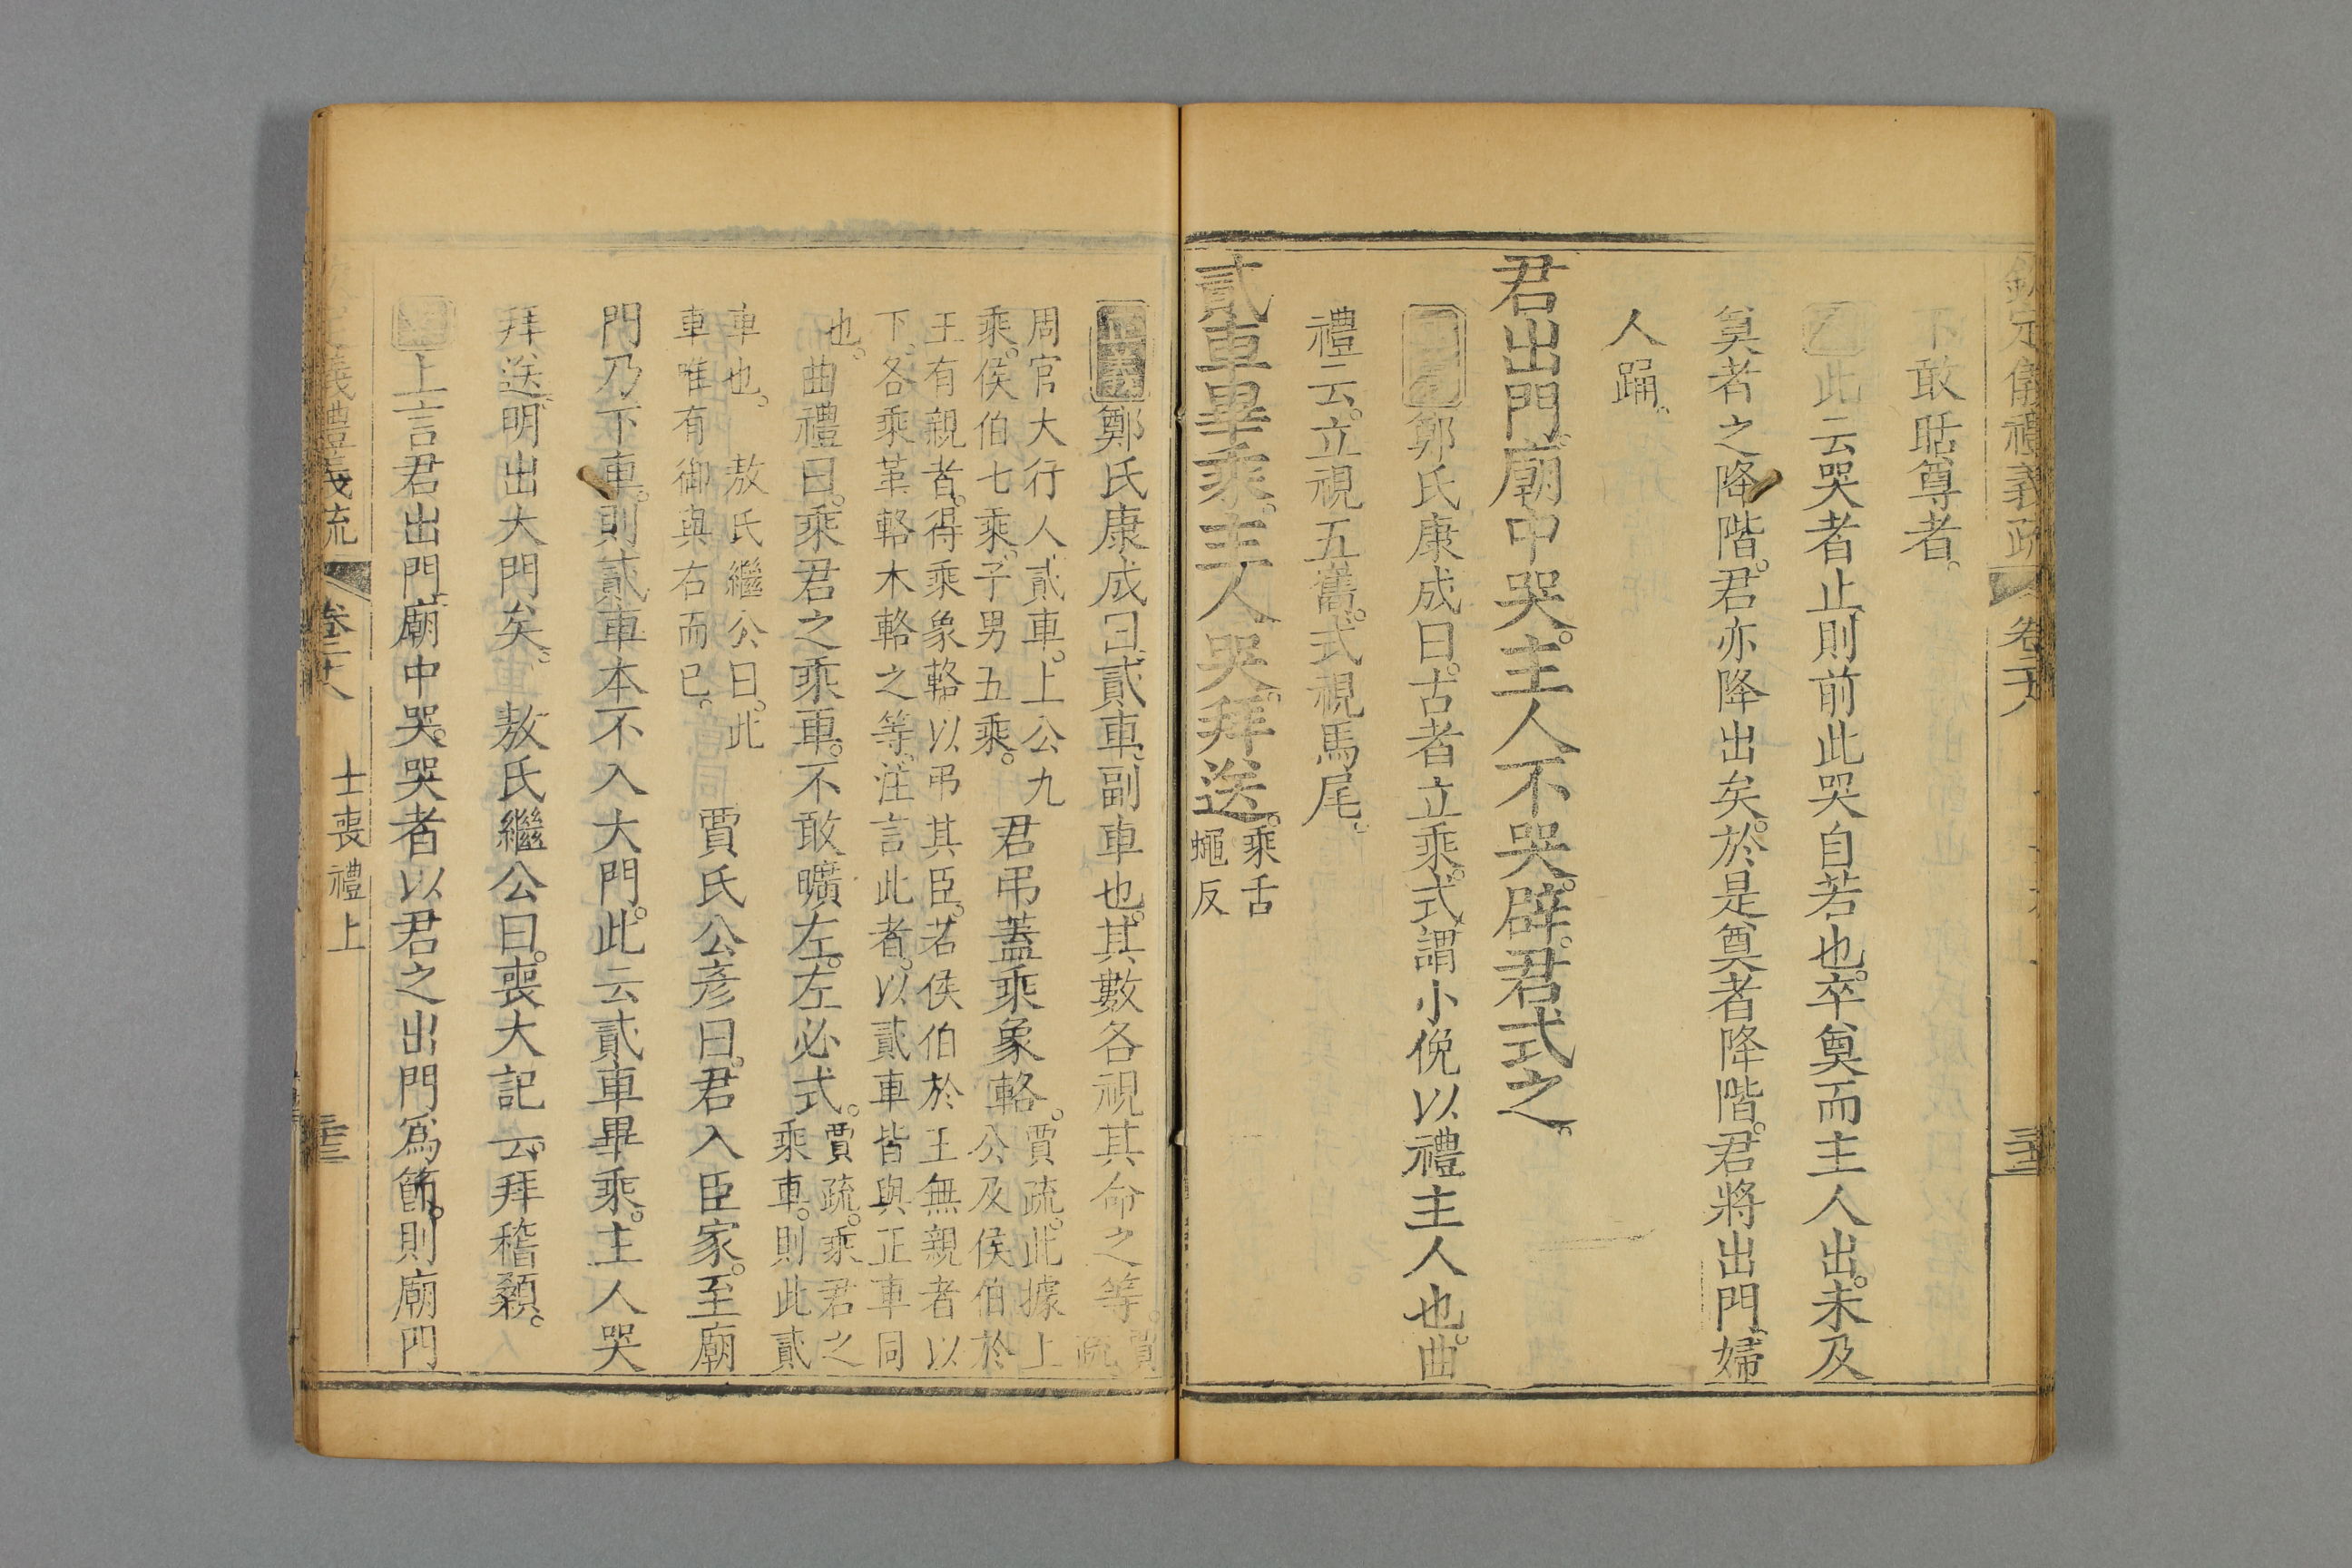 欽定儀禮義疏 卷二十八
不敢聒尊者。
此云哭者止則前此哭自若也。卒奠而主人出。未及
奠者之降階。君亦降出矣。於是奠者降階。君將出門。婦
人踊。
君出門。廟中哭。主人不哭。辟。君式之。
鄭氏康成曰。古者立乘。式謂小俛以禮主人也。曲
禮云。立視五巂。式視馬尾。
貳車畢乘。主人哭。拜送。乘舌
蠅反
正義鄭氏康成曰。貳車、副車也。其數各視其命之等。賈
疏
周官大行人貳車。上公九
乘。侯伯七乘。子男五乘。
君弔蓋乘象輅。賈疏。此據上
公及侯伯於
王有親者。得乘象輅以弔其臣。若侯伯於王無親者以
下、各乘革輅木輅之等。注言此者。以貳車皆與正車同
也。
曲禮曰。乘君之乘車。不敢曠左。左必式。賈疏。乘君之
乘車。則此貳
車也。 敖氏繼公曰。此
車唯有御與右而已。
賈氏公彥曰。君入臣家。至廟
門乃下車。則貳車本不入大門。此云貳車畢乘。主人哭
拜送。明出大門矣。 敖氏繼公曰。喪大記云。拜稽顙。
上言君出門。廟中哭。哭者以君之出門爲節。則廟門
儀禮義疏 卷二十八 士喪禮上